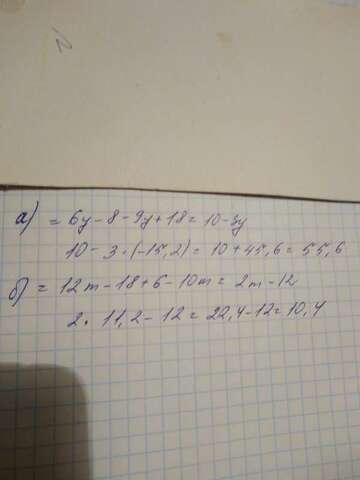 а) = 6y - 8 - 9y + 18 = 10 - 3y
10 - 3 · (-15,2) = 10 + 45,6 = 55,6
б) = 12m - 18 + 6 - 10m = 2m - 12
2 · 11,2 - 12 = 22,4 - 12 = 10,4